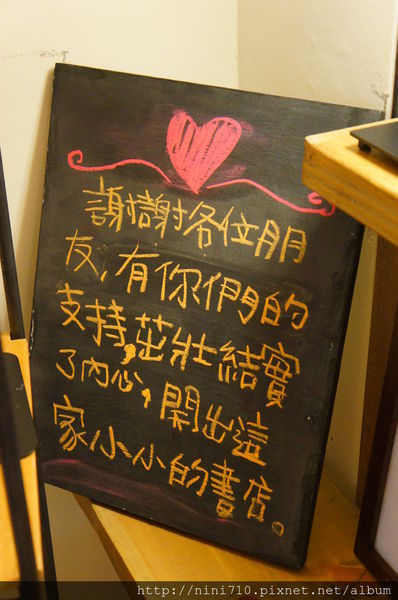 謝謝各位朋
友,有你們的
支持,茁壯結實
了內心,開出這
家小小的書店。
http://nini710.pixnet.net/album